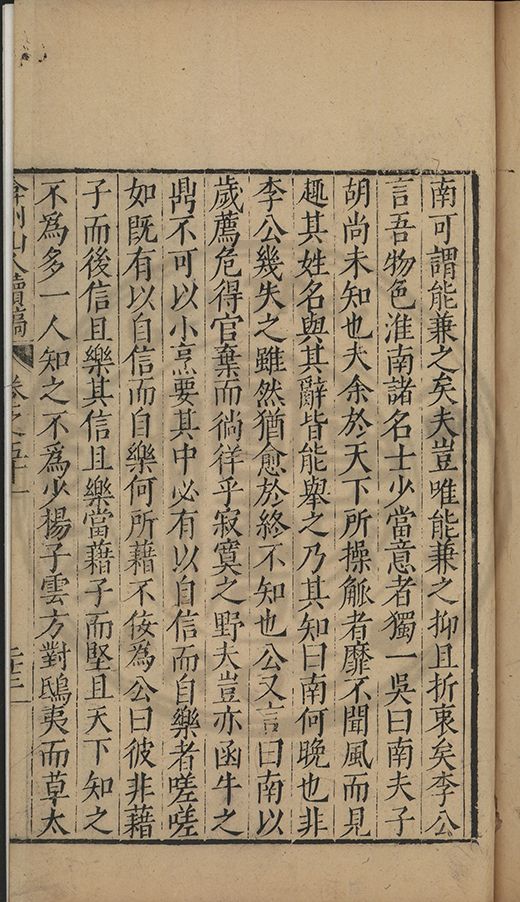 南可謂能兼之矣夫豈唯能兼之抑且折衷矣李公
言吾物色淮南諸名士少當意者獨一吳曰南夫子
胡尚未知也夫余於天下所操觚者靡不聞風而見
趣其姓名與其辭皆能舉之乃其知曰南何晚也非
李公幾失之雖然猶愈於終不知也公又言曰南以
歲薦危得官棄而徜徉乎寂寞之野夫豈亦函牛之
鼎不可以小烹要其中必有以自信而自樂者嗟嗟
如既有以自信而自樂何所藉不佞為公曰彼非藉
子而後信且樂其信且樂當藉子而堅且天下知之
不為多一人知之不為少楊子雲方對鴟夷而草太
弇州山人續稿 卷之五十一 二十三